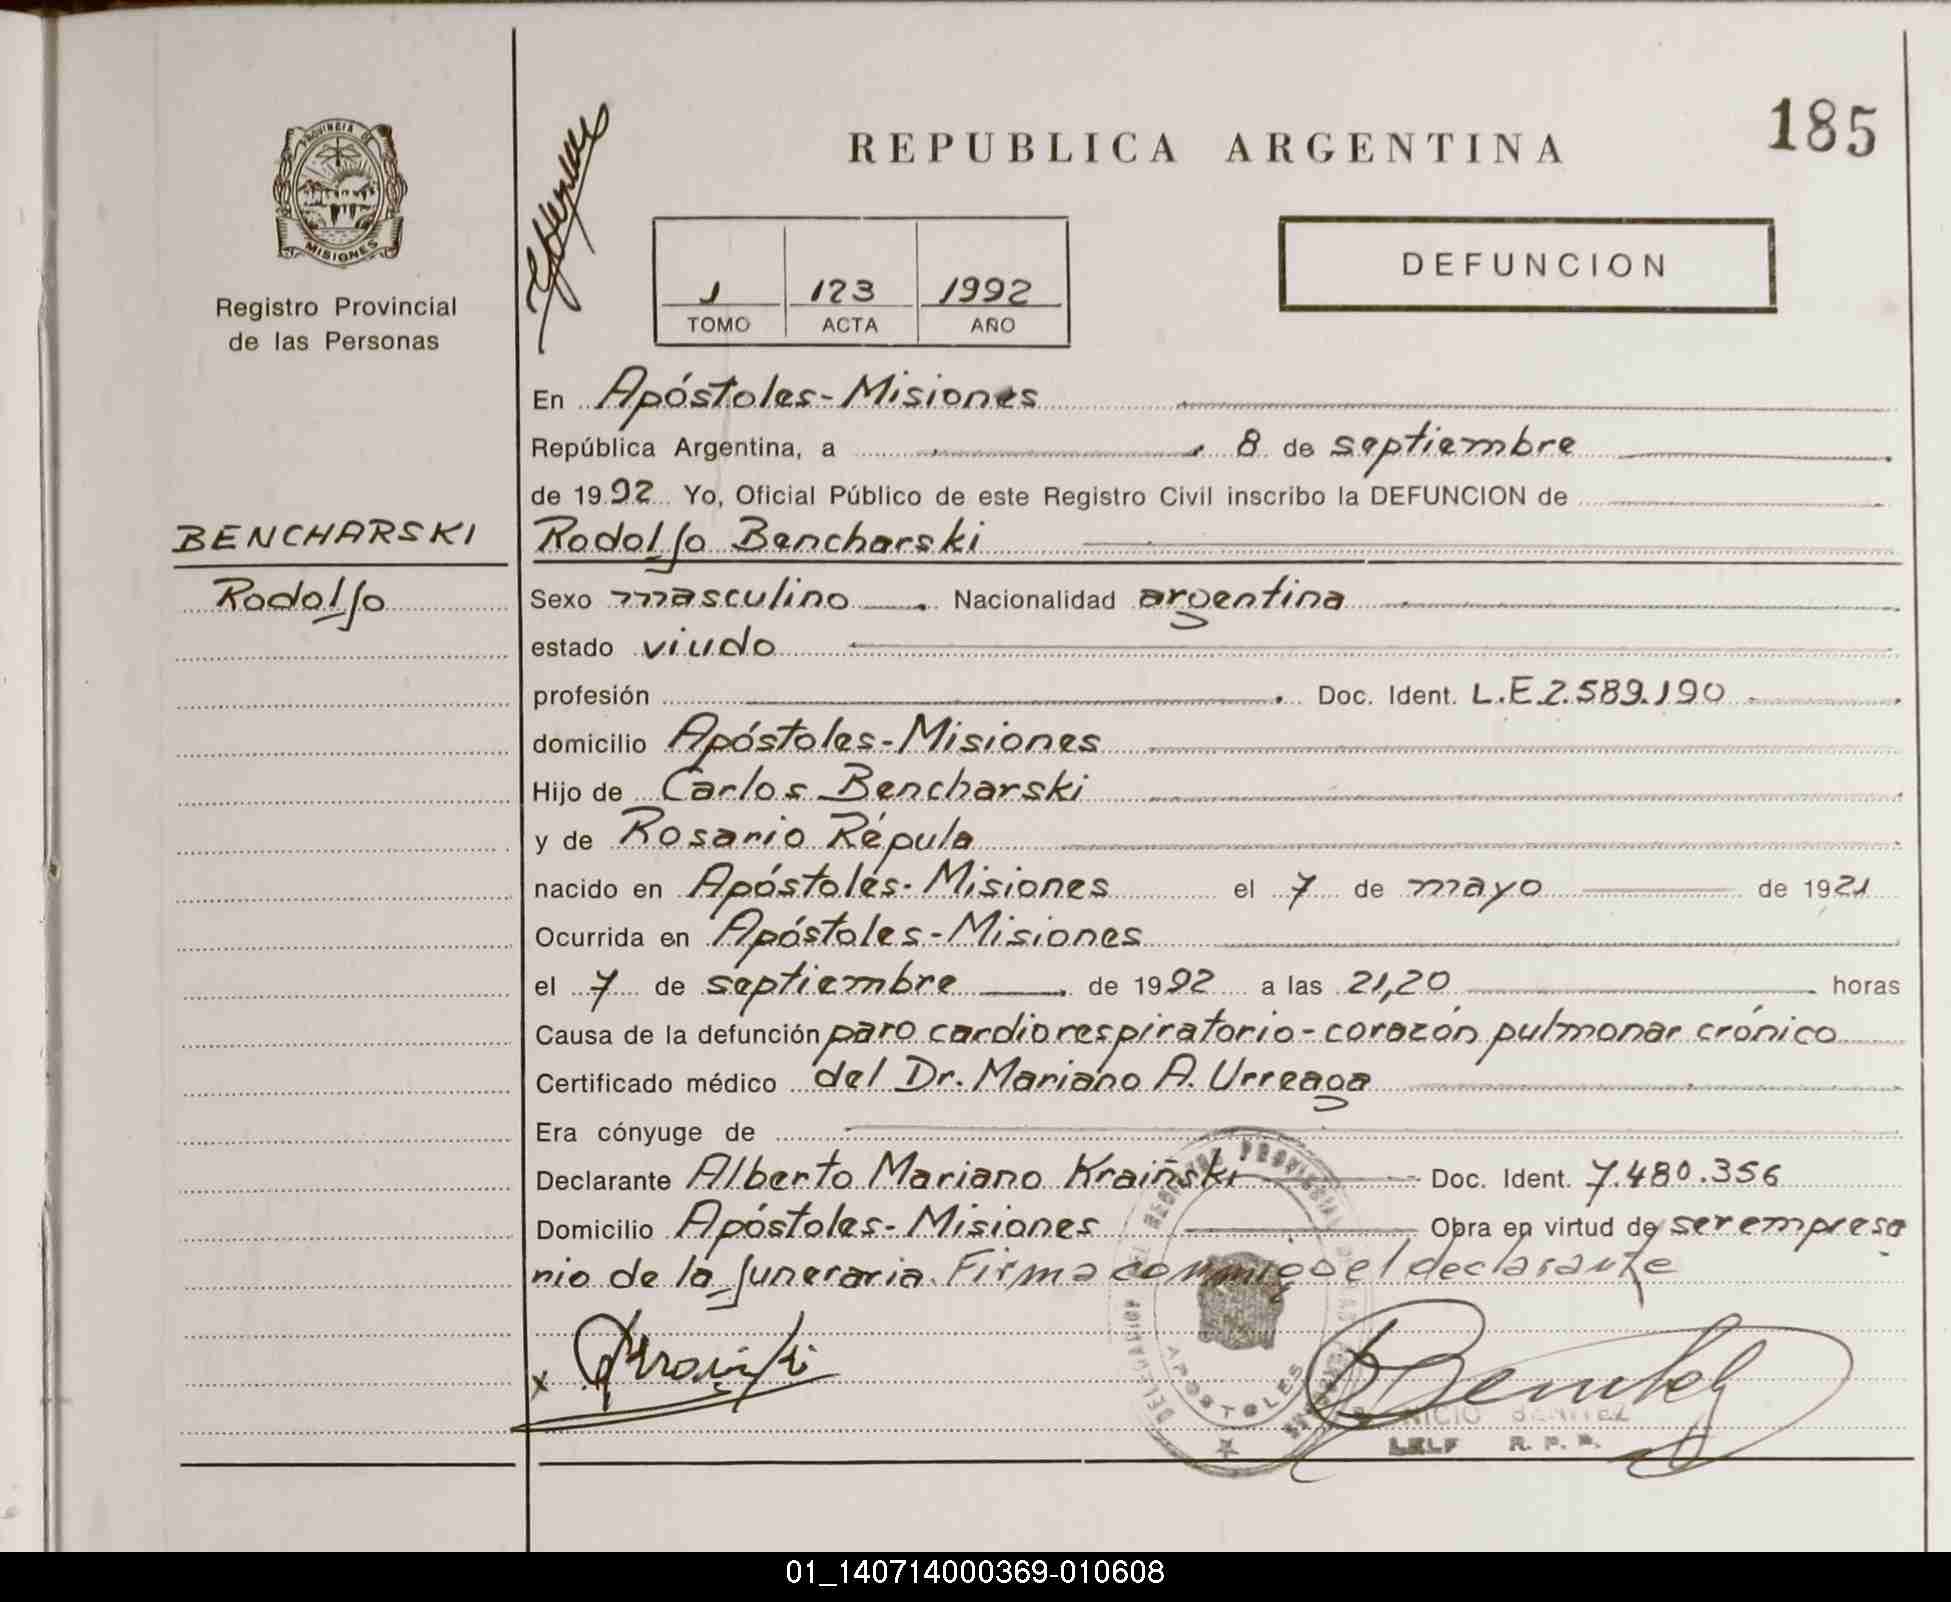 REPUBLICA ARGENTINA
185
PROVINCIA DE
MISIONES
Registro Provincial
de las Personas
DEFUNCION
1 123 1992
TOMO ACTA AÑO
En Apóstoles-Misiones
República Argentina, a 8 de septiembre
de 1992 Yo, Oficial Público de este Registro Civil inscribo la DEFUNCION de
BENCHARSKI
Rodolfo Bencharski
Rodolfo
Sexo masculino. Nacionalidad argentina
estado viudo
profesión . Doc. Ident. L.E.2.589.190
domicilio Apóstoles-Misiones
Hijo de Carlos Bencharski
y de Rosario Répula
nacido en Apóstoles-Misiones el 7 de mayo de 1921
Ocurrida en Apóstoles-Misiones
el 7 de septiembre . de 1992 a las 21,20 . horas
Causa de la defunción paro cardiorespiratorio-corazón pulmonar crónico
Certificado médico del Dr. Mariano A. Urreaga
Era cónyuge de
Declarante Alberto Mariano Kraiñski Doc. Ident. 7.480.356
Domicilio Apóstoles-Misiones Obra en virtud de ser empresa
rio de la funeraria. Firma conmigo el declarante
x
APOSTOLES
BENITEZ
R. P. P.
01_140714000369-010608